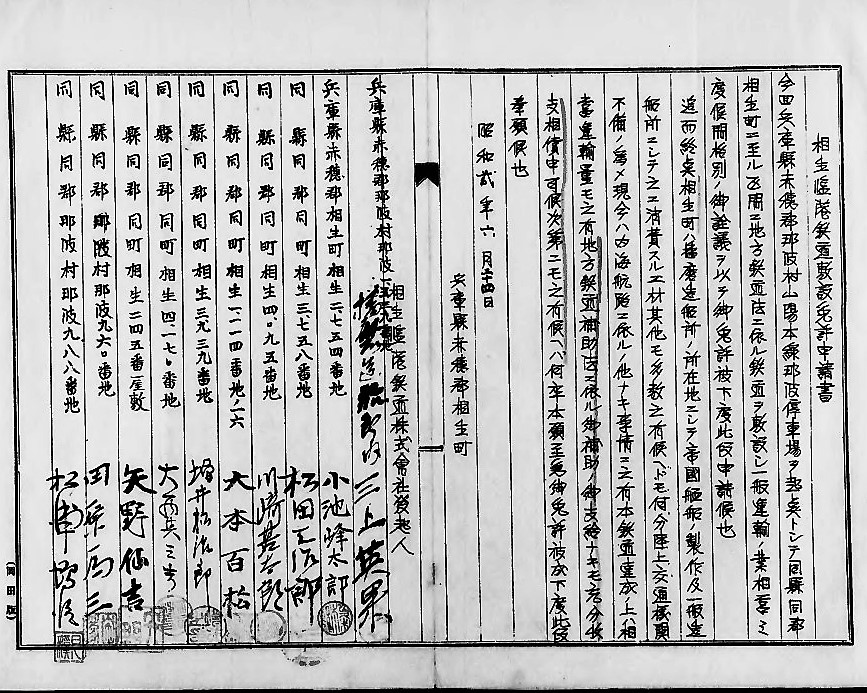 相生臨港鉄道敷設免許申請書
今回兵庫縣赤穂郡那波村山陽本線那波停車場ヲ起点トシテ同縣同郡
相生町ニ至ル区間ニ地方鉄道法ニ依ル鉄道ヲ敷設シ一般運輸ノ業相営ミ
度候間格別ノ御詮議ヲ以テ御免許被下度此段申請候也
追而終点相生町ハ播磨造船所ノ所在地ニシテ帝國船舶ノ製作及一般造
船所ニシテ之ニ消費スル工材其他モ多数之有候ヘドモ何分陸上交通機関
不備ノ為メ現今ハ内海航路ニ依ルノ他ナキ事情ニ之有本鉄道達成ノ上ハ相
当運輸量モ之有地方鉄道補助法ニ依ル御補助ノ御支給ナキモ充分収
支相償申可候次第ニモ之有候ヘハ何卒本願至急御免許被成下度此段
奉願候也
昭和貳年六月二十四日
兵庫縣赤穂郡相生町
相生臨港鉄道株式會社発起人
兵庫縣赤穂郡那波村那波
播磨造船所内 三上英果
兵庫縣赤穂郡相生町相生二、七五四番地 小池峰太郎
同縣同郡同町相生三、七五八番地 松田
同縣同郡同町相生四、〇九五番地 川崎甚太郎
同縣同郡同町相生一、一一四番地ノ一六 大本百松
同縣同郡同町相生三九三九番地
同縣同郡同町相生四、一七〇番地 大西兵三
同縣同郡同町相生二四五番屋敷 矢野仙吉
同縣同郡那波村那波九六〇番地
同縣同郡那波村那波九八八番地 松本
(岡田版)